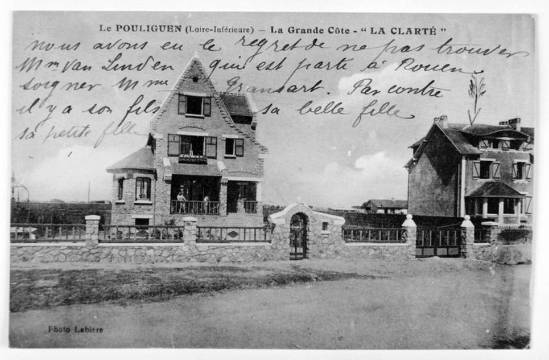 Le POULIGUEN (Loire-Inférieure) – La Grande Côte - “ LA CLARTÉ ”
nous avons eu le regret de ne pas trouver
Mme Van Linden qui est partie à Rouen
soigner Mme Gransart. Par contre
il y a son fils, sa belle fille
sa petite fille
Photo Laberre